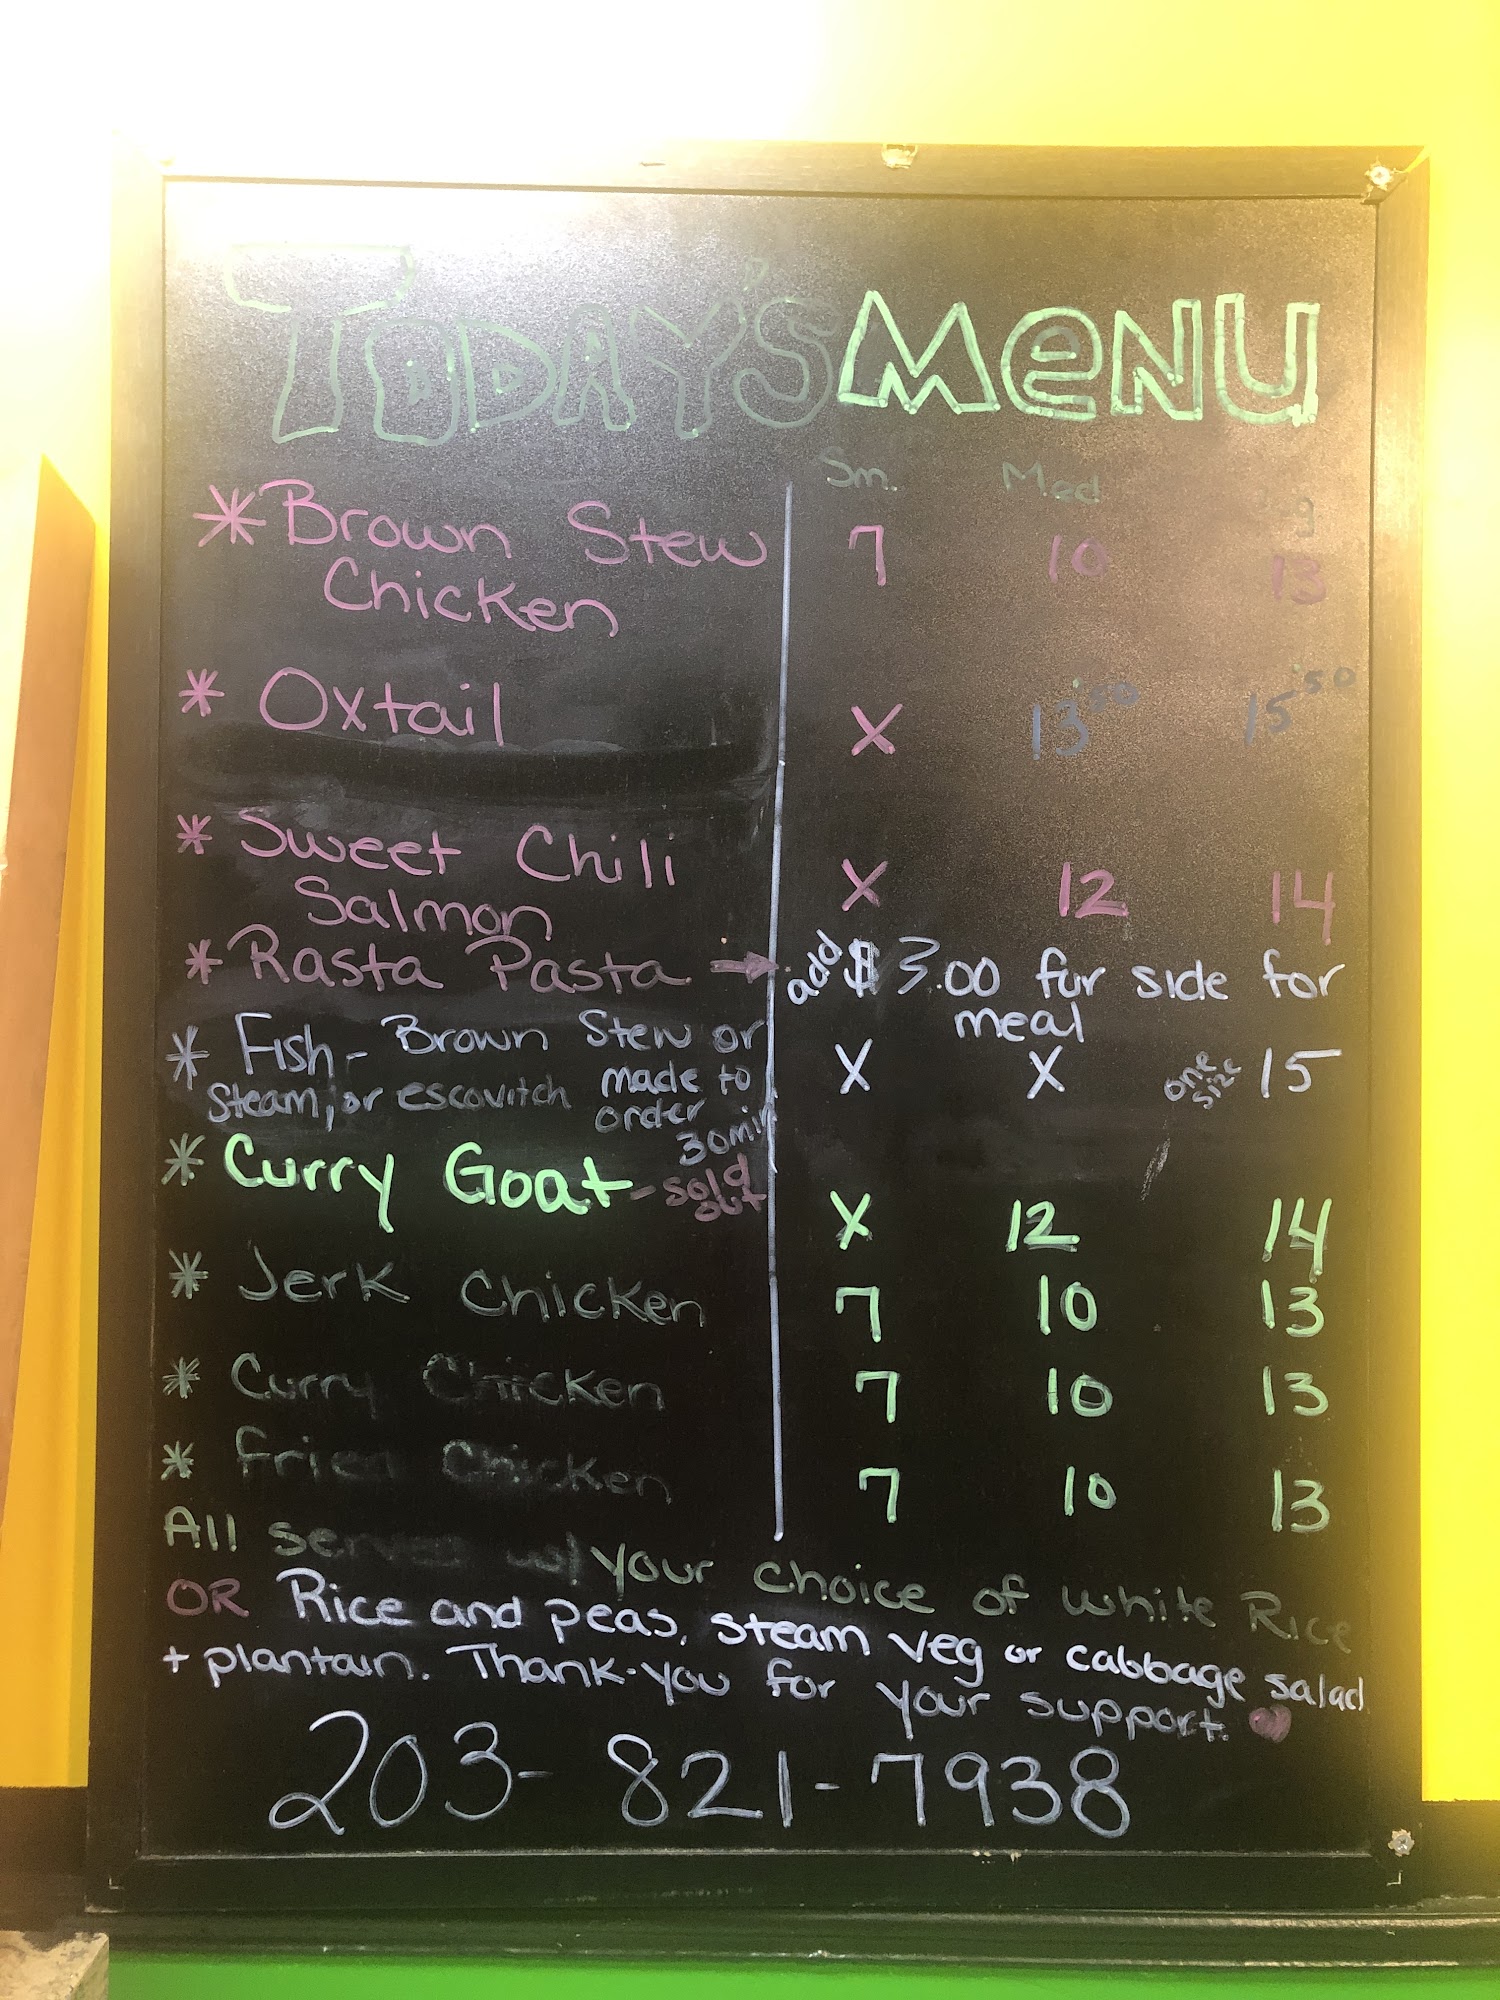 TODAY'S MENU
Sm. Med g
* Brown Stew 7 10 13
Chicken
* Oxtail X 13.50 15.50
* Sweet Chili
Salmon X 12 14
* Rasta Pasta → add $3.00 fur side for
meal
* Fish - Brown Stew or X X one size 15
Steam, or escovitch made to
order
30min
* Curry Goat - sold out X 12 14
* Jerk Chicken 7 10 13
* Curry Chicken 7 10 13
* Fried Chicken 7 10 13
All served w/ your choice of white Rice
OR Rice and peas, steam veg or cabbage salad
+ plantain. Thank-you for your support. ♥
203-821-7938